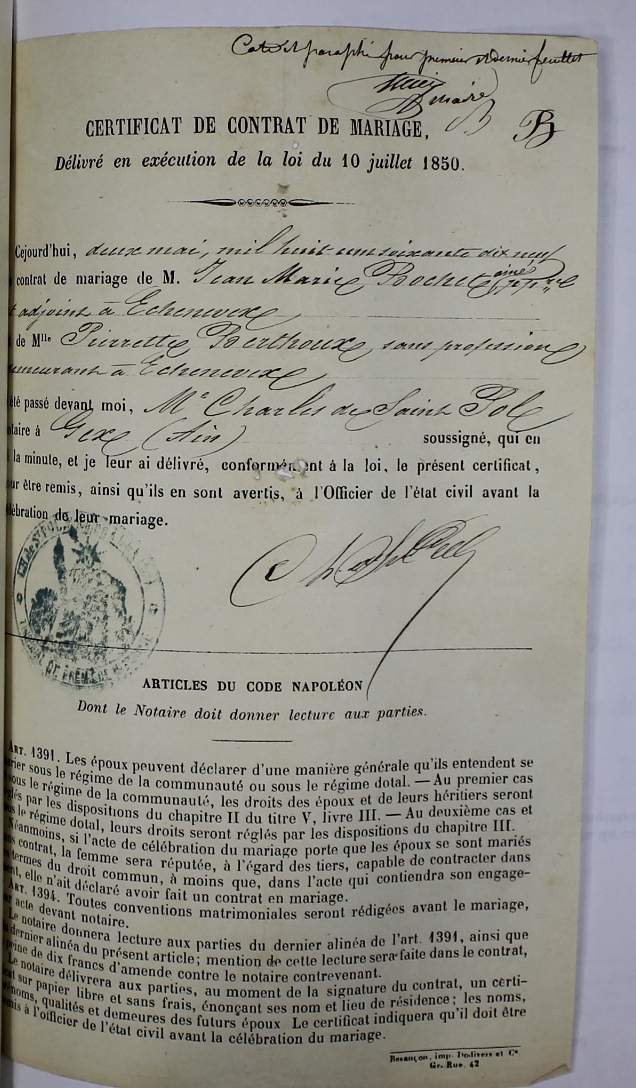 Coté et paraphé pour premier et dernier feuillet
maire
CERTIFICAT DE CONTRAT DE MARIAGE,
Délivré en exécution de la loi du 10 juillet 1850.
Cejourd'hui, deux mai, mil huit cent soixante dix neuf
contrat de mariage de M. Jean Marie Rochet aîné
adjoint à Echenevex
de Mlle Pierrette Berthoux, sans profession
demeurant à Echenevex
été passé devant moi, Me Charles de Saint Pol
taire à Gex (Ain) soussigné, qui en
la minute, et je leur ai délivré, conformément à la loi, le présent certificat,
ur être remis, ainsi qu'ils en sont avertis, à l'Officier de l'état civil avant la
lébration de leur mariage.
ARTICLES DU CODE NAPOLÉON
Dont le Notaire doit donner lecture aux parties.
ART. 1391. Les époux peuvent déclarer d'une manière générale qu'ils entendent se
rier sous le régime de la communauté ou sous le régime dotal. — Au premier cas
sous le régime de la communauté, les droits des époux et de leurs héritiers seront
glés par les dispositions du chapitre II du titre V, livre III. — Au deuxième cas et
us le régime dotal, leurs droits seront réglés par les dispositions du chapitre III.
Néanmoins, si l'acte de célébration du mariage porte que les époux se sont mariés
ns contrat, la femme sera réputée, à l'égard des tiers, capable de contracter dans
termes du droit commun, à moins que, dans l'acte qui contiendra son engage-
ent, elle n'ait déclaré avoir fait un contrat en mariage.
ART. 1394. Toutes conventions matrimoniales seront rédigées avant le mariage,
r acte devant notaire.
Le notaire donnera lecture aux parties du dernier alinéa de l'art. 1391, ainsi que
dernier alinéa du présent article; mention de cette lecture sera faite dans le contrat,
peine de dix francs d'amende contre le notaire contrevenant.
Le notaire délivrera aux parties, au moment de la signature du contrat, un certi-
cat sur papier libre et sans frais, énonçant ses nom et lieu de résidence; les noms,
énoms, qualités et demeures des futurs époux Le certificat indiquera qu'il doit être
mis à l'officier de l'état civil avant la célébration du mariage.
Besançon, imp. Dodivers et Ce
Gr. Rue, 42